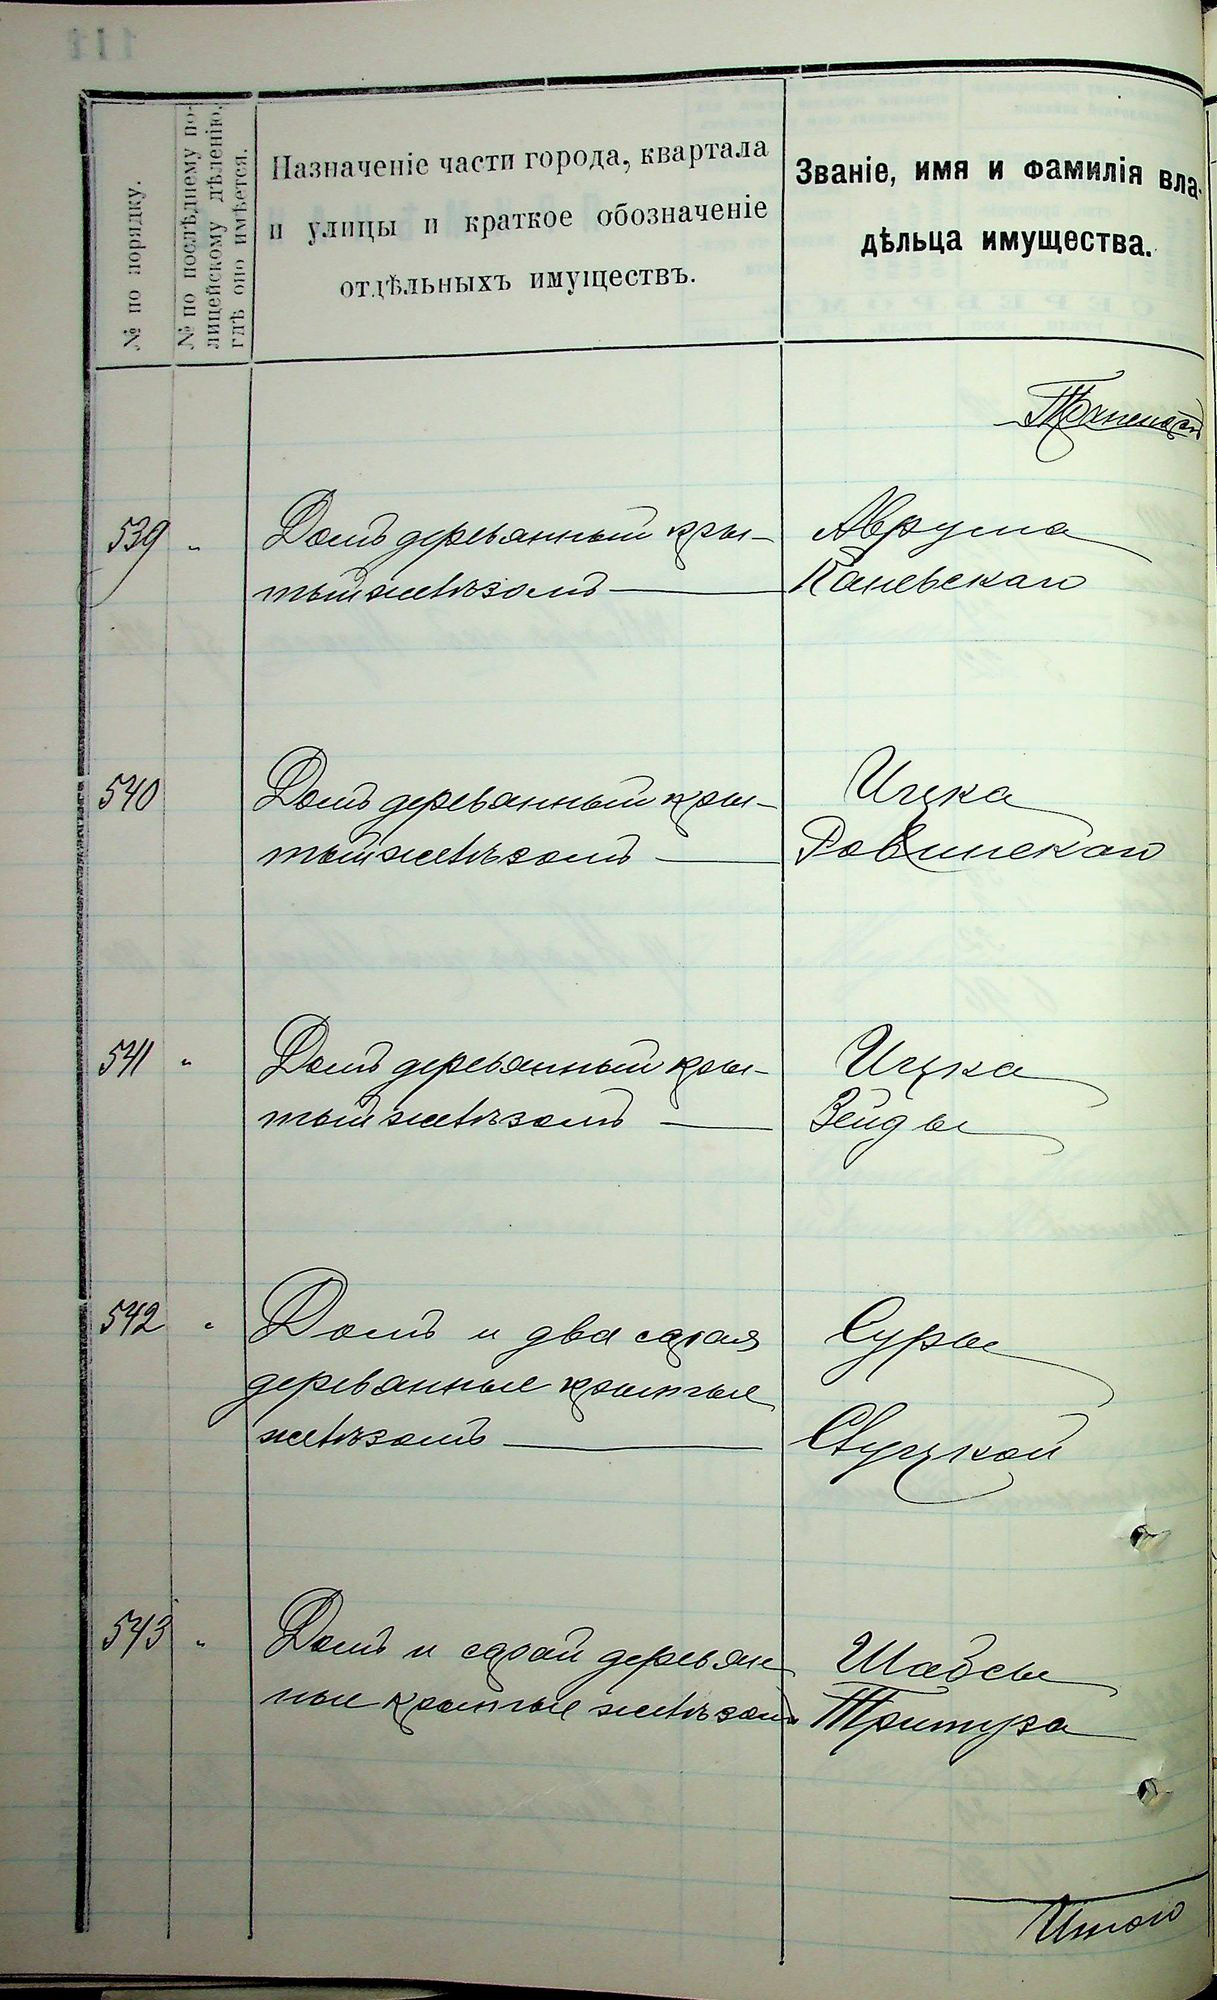 № по порядку.
№ по послѣднему по-
лицейскому дѣленію,
гдѣ оно имѣется.
Назначеніе части города, квартала
и улицы и краткое обозначеніе
отдѣльныхъ имуществъ.
Званіе, имя и фамилія вла-
дѣльца имущества.
539 " Домъ деревянный кры- Аврума
тый желѣзомъ — Каневскаго
540 Домъ деревянный кры- Ицка
тый желѣзомъ — Ровинскаго
541 " Домъ деревянный кры- Ицка
тый желѣзомъ — Зейды
542 " Домъ и два сарая Суры
деревянные крытые
желѣзомъ — Слуцкой
543 " Домъ и сарай деревян- Шабсы
ные крытые желѣзомъ
Итого